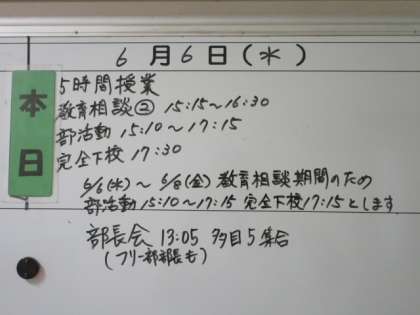 6月6日(水)
本日
5時間授業
教育相談② 15:15～16:30
部活動 15:10～17:15
完全下校 17:30
6/6(水)～6/8(金)教育相談期間のため
部活動15:10～17:15 完全下校17:15とします
部長会 13:05 多目5集合
(フリー部部長も)